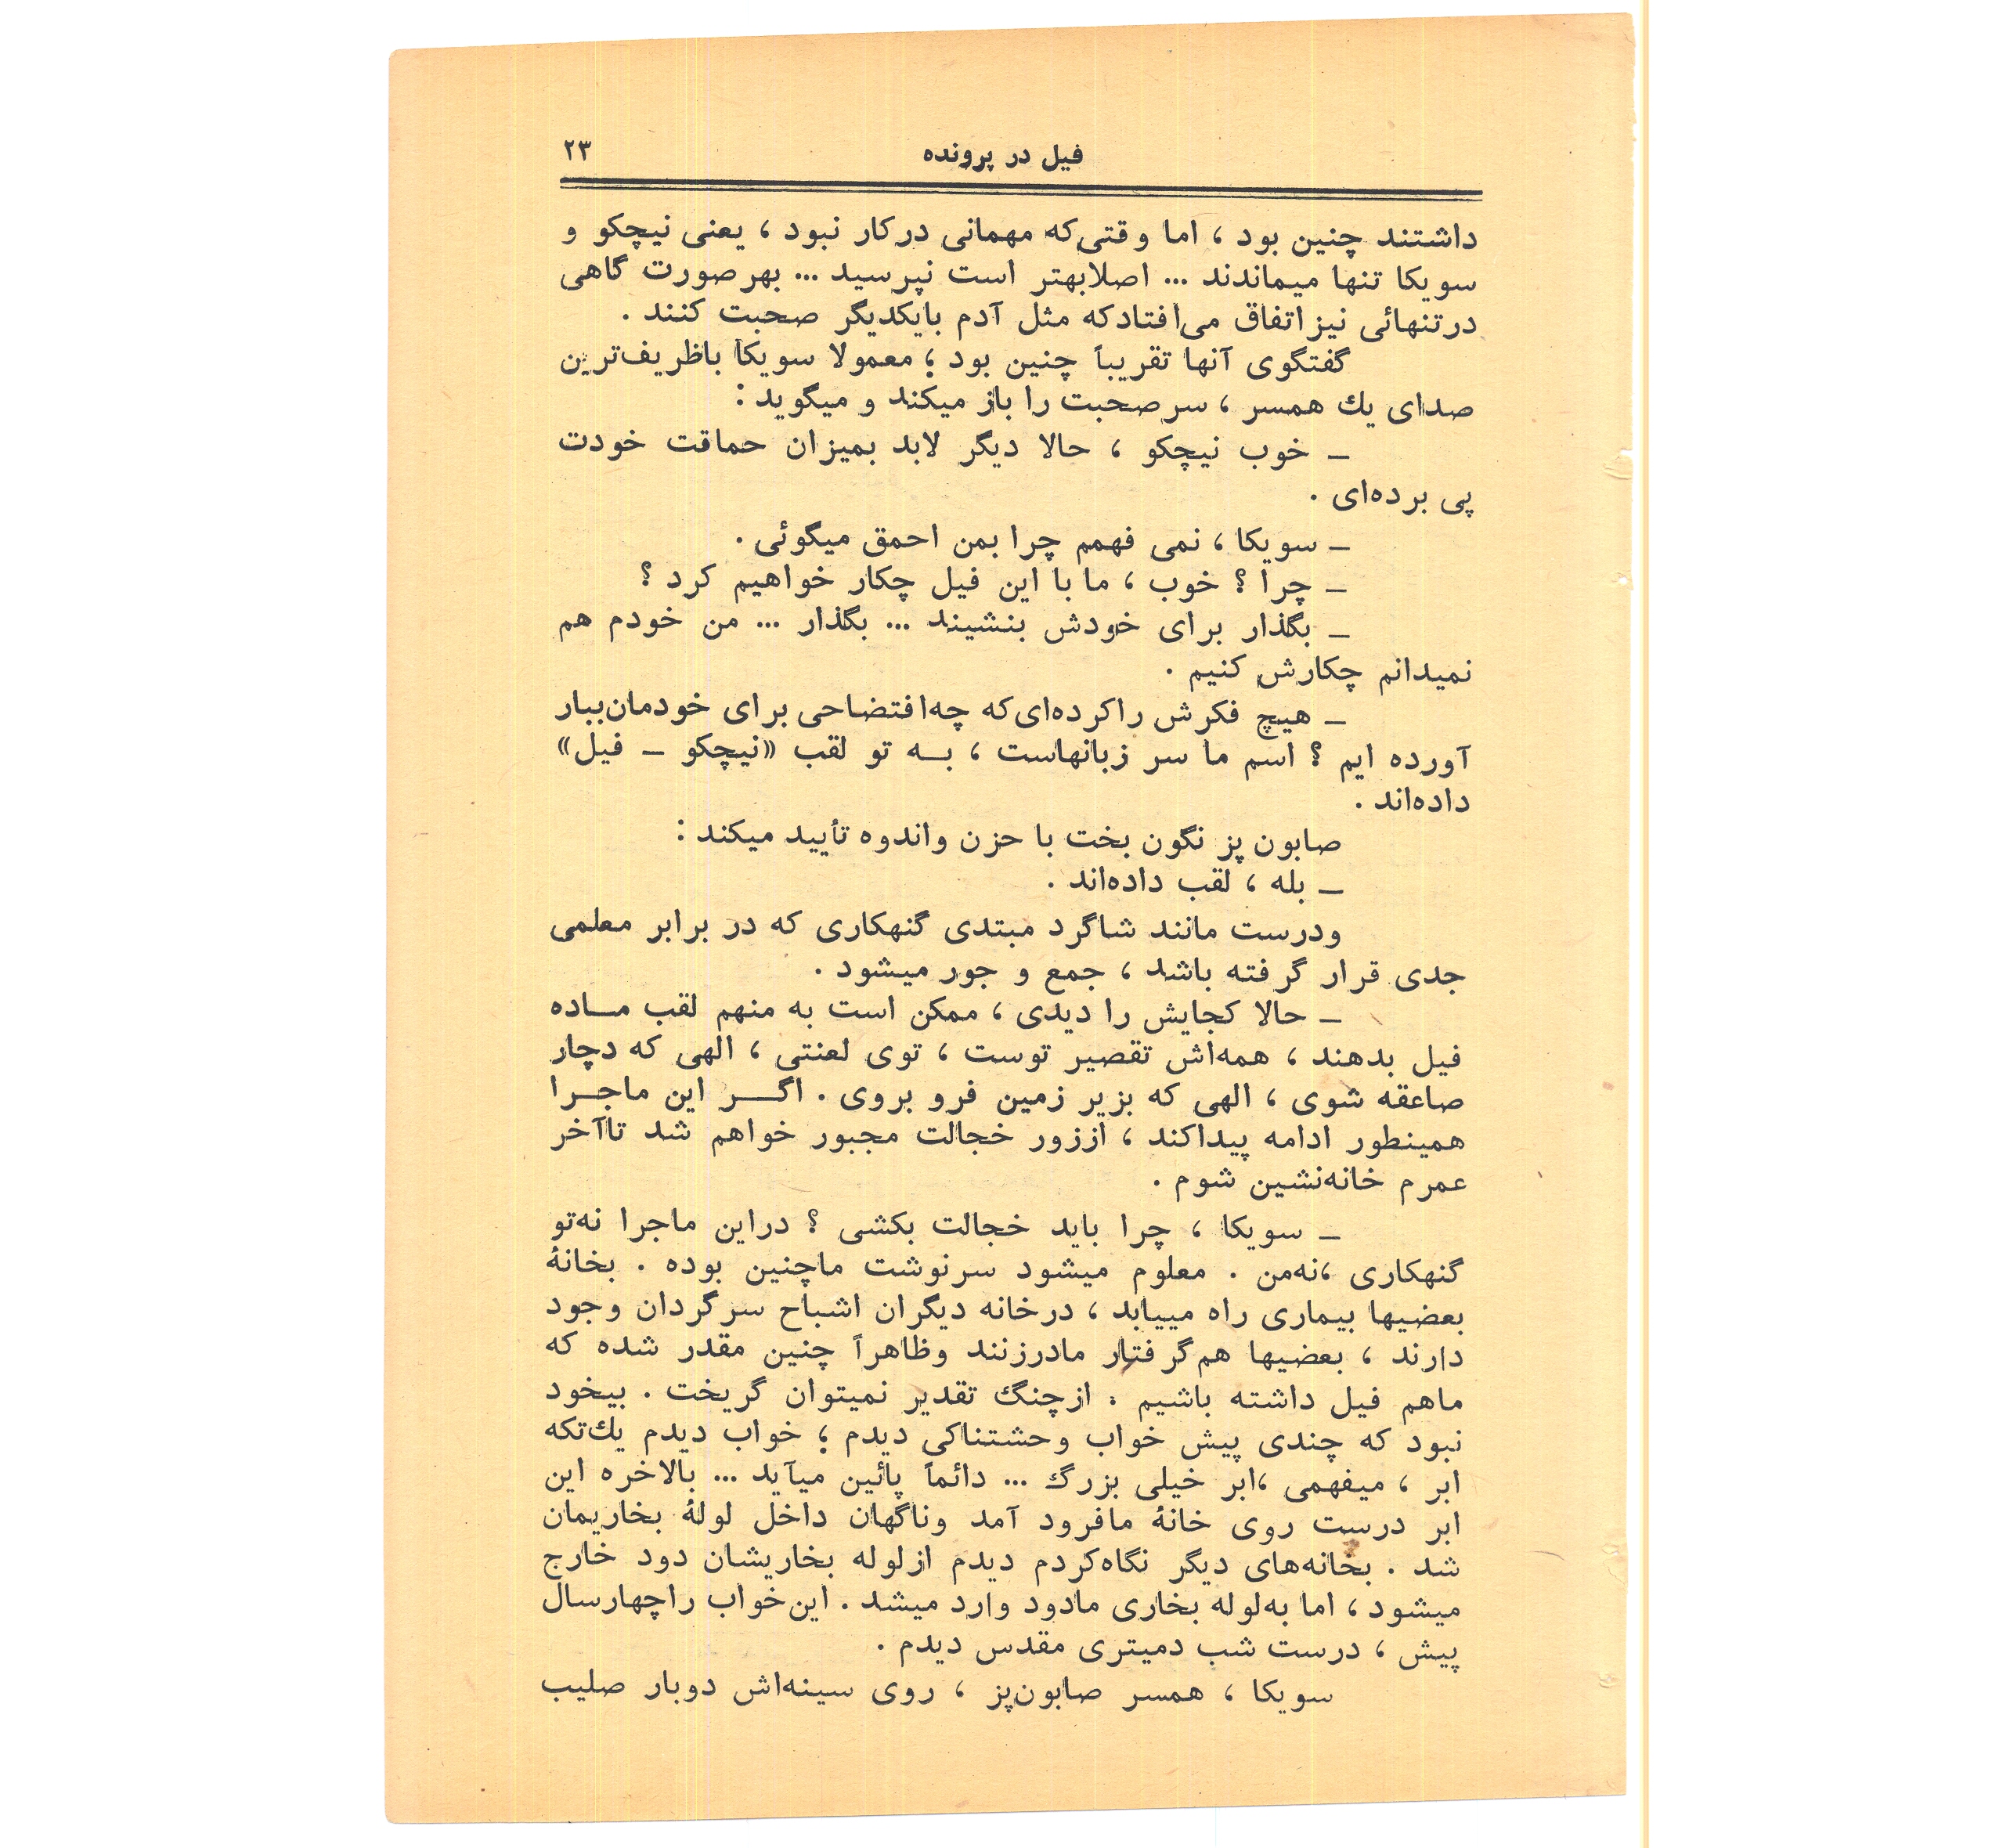 فیل در پرونده ۲۳
داشتند چنین بود ، اما وقتی‌که مهمانی درکار نبود ، یعنی نیچکو و
سویکا تنها میماندند ... اصلابهتر است نپرسید ... بهرصورت گاهی
درتنهائی نیزاتفاق می‌افتادکه مثل آدم بایکدیگر صحبت کنند .
گفتگوی آنها تقریباً چنین بود ؛ معمولا سویکا باظریف‌ترین
صدای یك همسر ، سرصحبت را باز میکند و میگوید :
ــ خوب نیچکو ، حالا دیگر لابد بمیزان حماقت خودت
پی برده‌ای .
ــ سویکا ، نمی فهمم چرا بمن احمق میگوئی .
ــ چرا ؟ خوب ، ما با این فیل چکار خواهیم کرد ؟
ــ بگذار برای خودش بنشیند ... بگذار ... من خودم هم
نمیدانم چکارش کنیم .
ــ هیچ فکرش راکرده‌ای‌که چه‌افتضاحی برای خودمان‌ببار
آورده ایم ؟ اسم ما سر زبانهاست ، بــه تو لقب «نیچکو ــ فیل»
داده‌اند .
صابون پز نگون بخت با حزن واندوه تأیید میکند :
ــ بله ، لقب داده‌اند .
ودرست مانند شاگرد مبتدی گنهکاری که در برابر معلمی
جدی قرار گرفته باشد ، جمع و جور میشود .
ــ حالا کجایش را دیدی ، ممکن است به منهم لقب مــاده
فیل بدهند ، همه‌اش تقصیر توست ، توی لعنتی ، الهی که دچار
صاعقه شوی ، الهی که بزیر زمین فرو بروی . اگــــر این ماجــرا
همینطور ادامه پیداکند ، اززور خجالت مجبور خواهم شد تاآخر
عمرم خانه‌نشین شوم .
ــ سویکا ، چرا باید خجالت بکشی ؟ دراین ماجرا نه‌تو
گنهکاری ،نه‌من . معلوم میشود سرنوشت ماچنین بوده . بخانهٔ
بعضیها بیماری راه مییابد ، درخانه دیگران اشباح سرگردان وجود
دارند ، بعضیها هم‌گرفتار مادرزنند وظاهراً چنین مقدر شده که
ماهم فیل داشته باشیم . ازچنگ تقدیر نمیتوان گریخت . بیخود
نبود که چندی پیش خواب وحشتناکی دیدم ؛ خواب دیدم یك‌تکه
ابر ، میفهمی ،ابر خیلی بزرگ ... دائماً پائین میآید ... بالاخره این
ابر درست روی خانهٔ مافرود آمد وناگهان داخل لولهٔ بخاریمان
شد . بخانه‌های دیگر نگاه‌کردم دیدم ازلوله بخاریشان دود خارج
میشود ، اما به‌لوله بخاری مادود وارد میشد . این‌خواب راچهارسال
پیش ، درست شب دمیتری مقدس دیدم .
سویکا ، همسر صابون‌پز ، روی سینه‌اش دوبار صلیب